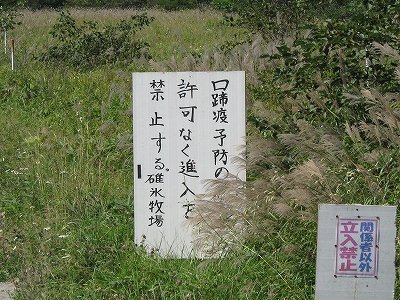 口蹄疫予防の
許可なく進入を
禁止する。
碓氷牧場
関係者以外
立入禁止